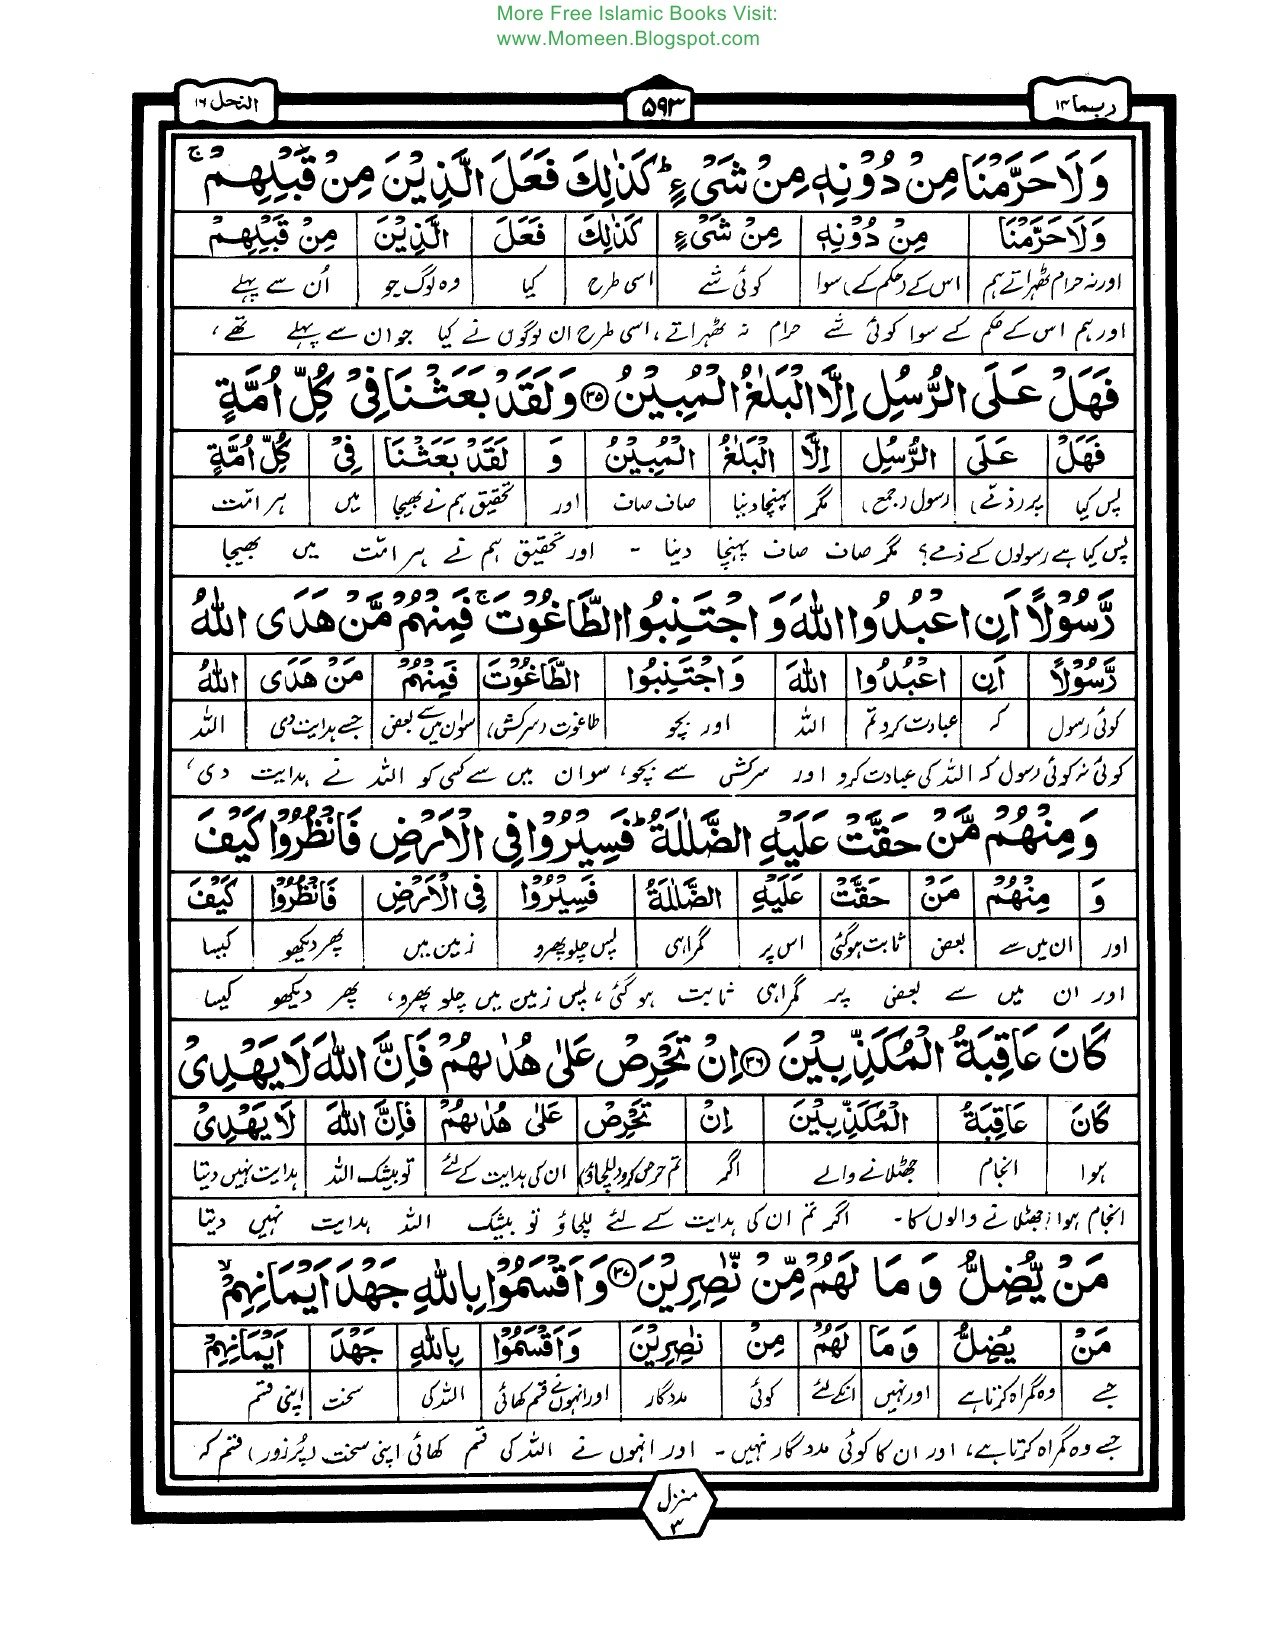 More Free Islamic Books Visit:
www.Momeen.Blogspot.com
ربما ۱۴
۵۹۳
النحل ۱۶
وَلَا حَرَّمْنَا مِنْ دُوْنِهٖ مِنْ شَیْءٍ ؕ کَذٰلِکَ فَعَلَ الَّذِیْنَ مِنْ قَبْلِهِمْ ۚ
وَلَا حَرَّمْنَا مِنْ دُوْنِهٖ مِنْ شَیْءٍ کَذٰلِکَ فَعَلَ الَّذِیْنَ مِنْ قَبْلِهِمْ
اور نہ حرام ٹھہراتے ہم اس کے (حکم کے) سوا کوئی شے اسی طرح کیا وہ لوگ جو اُن سے پہلے
اور ہم اس کے حکم کے سوا کوئی شے حرام نہ ٹھہراتے، اسی طرح ان لوگوں نے کیا جو ان سے پہلے تھے،
فَهَلْ عَلَی الرُّسُلِ اِلَّا الْبَلٰغُ الْمُبِیْنُ ۳۵ وَلَقَدْ بَعَثْنَا فِیْ کُلِّ اُمَّةٍ
فَهَلْ عَلَی الرُّسُلِ اِلَّا الْبَلٰغُ الْمُبِیْنُ وَ لَقَدْ بَعَثْنَا فِیْ کُلِّ اُمَّةٍ
پس کیا پر (ذمّے) رسول (جمع) مگر پہنچا دینا صاف صاف اور تحقیق ہم نے بھیجا میں ہر امّت
پس کیا ہے رسولوں کے ذمے؟ مگر صاف صاف پہنچا دینا - اور تحقیق ہم نے ہر امّت میں بھیجا
رَّسُوْلًا اَنِ اعْبُدُوا اللّٰهَ وَ اجْتَنِبُوا الطَّاغُوْتَ ۚ فَمِنْهُمْ مَّنْ هَدَی اللّٰهُ
رَّسُوْلًا اَنِ اعْبُدُوا اللّٰهَ وَ اجْتَنِبُوا الطَّاغُوْتَ فَمِنْهُمْ مَنْ هَدَی اللّٰهُ
کوئی رسول کہ عبادت کرو تم اللہ اور بچو طاغوت (سرکش) سو ان میں سے بعض جسے ہدایت دی اللہ
کوئی نہ کوئی رسول کہ اللہ کی عبادت کرو اور سرکش سے بچو، سو ان میں سے کسی کو اللہ نے ہدایت دی،
وَ مِنْهُمْ مَّنْ حَقَّتْ عَلَیْهِ الضَّلٰلَةُ ؕ فَسِیْرُوْا فِی الْاَرْضِ فَانْظُرُوْا کَیْفَ
وَ مِنْهُمْ مَنْ حَقَّتْ عَلَیْهِ الضَّلٰلَةُ فَسِیْرُوْا فِی الْاَرْضِ فَانْظُرُوْا کَیْفَ
اور ان میں سے بعض ثابت ہوگئی اس پر گمراہی پس چلو پھرو زمین میں پھر دیکھو کیسا
اور ان میں سے بعض پر گمراہی ثابت ہو گئی، پس زمین میں چلو پھرو، پھر دیکھو کیسا
کَانَ عَاقِبَةُ الْمُکَذِّبِیْنَ ۳۶ اِنْ تَحْرِصْ عَلٰی هُدٰىهُمْ فَاِنَّ اللّٰهَ لَا یَهْدِیْ
کَانَ عَاقِبَةُ الْمُکَذِّبِیْنَ اِنْ تَحْرِصْ عَلٰی هُدٰىهُمْ فَاِنَّ اللّٰهَ لَا یَهْدِیْ
ہوا انجام جھٹلانے والے اگر تم حرص کرو (للچاؤ) ان کی ہدایت کے لئے تو بیشک اللہ ہدایت نہیں دیتا
انجام ہوا جھٹلانے والوں کا - اگر تم ان کی ہدایت کے لئے للچاؤ تو بیشک اللہ ہدایت نہیں دیتا
مَنْ یُّضِلُّ وَ مَا لَهُمْ مِّنْ نّٰصِرِیْنَ ۳۷ وَ اَقْسَمُوْا بِاللّٰهِ جَهْدَ اَیْمَانِهِمْ ۙ
مَنْ یُضِلُّ وَ مَا لَهُمْ مِنْ نٰصِرِیْنَ وَ اَقْسَمُوْا بِاللّٰهِ جَهْدَ اَیْمَانِهِمْ
جسے وہ گمراہ کرتا ہے اور نہیں انکے لئے کوئی مددگار اور انہوں نے قسم کھائی اللہ کی سخت اپنی قسم
جسے وہ گمراہ کرتا ہے، اور ان کا کوئی مددگار نہیں - اور انہوں نے اللہ کی قسم کھائی اپنی سخت (پُرزور) قسم کہ
منزل
۳